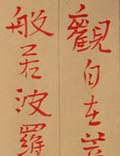 觀自在菩
般若波羅